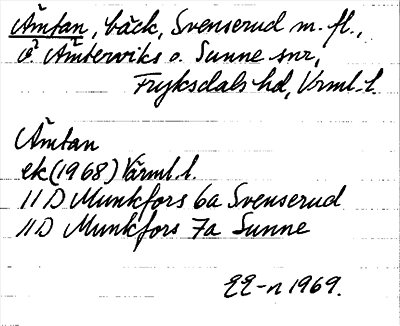 Ämtan, bäck, Svenserud m. fl.,
Ö Ämterviks o. Sunne snr,
Fryksdals hd, Vrml. l.
Ämtan
ek (1968) Värml. l.
11 D Munkfors 6a Svenserud
11 D Munkfors 7a Sunne
EE-n 1969.